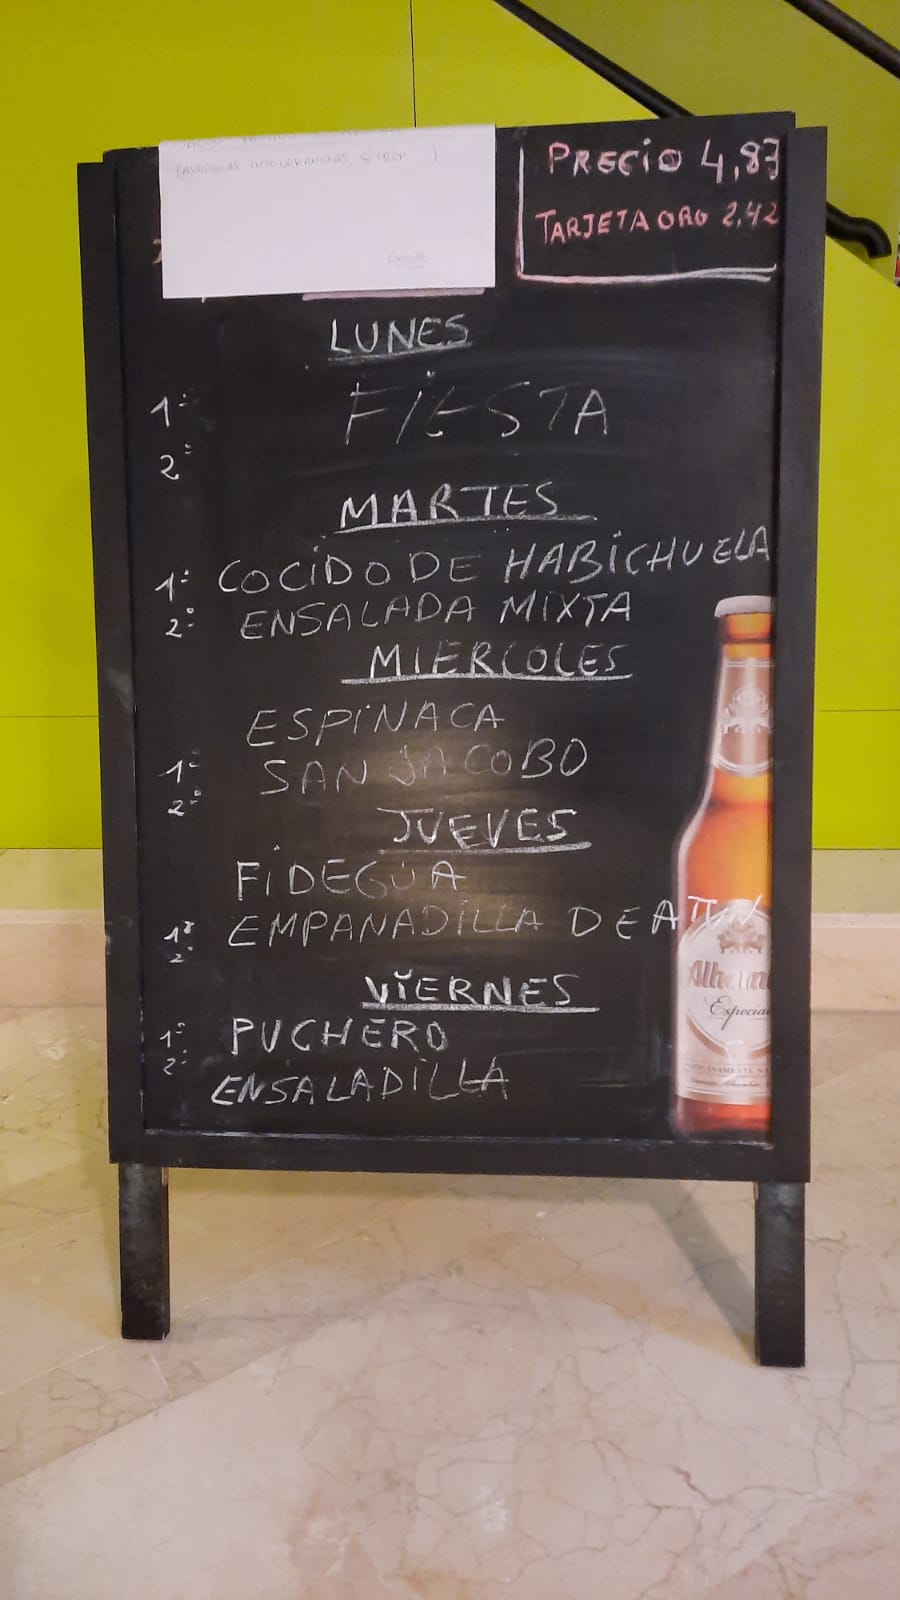 (ALERGIAS, INTOLERANCIAS, )
PRECIO 4,83
TARJETA ORO 2,42
LUNES
1º FIESTA
2º
MARTES
1º COCIDO DE HABICHUELA
2º ENSALADA MIXTA
MIERCOLES
ESPINACA
1º SAN JACOBO
2º
JUEVES
FIDEGUA
1º EMPANADILLA DE ATUN
2º
VIERNES
1º PUCHERO
2º ENSALADILLA
Especial